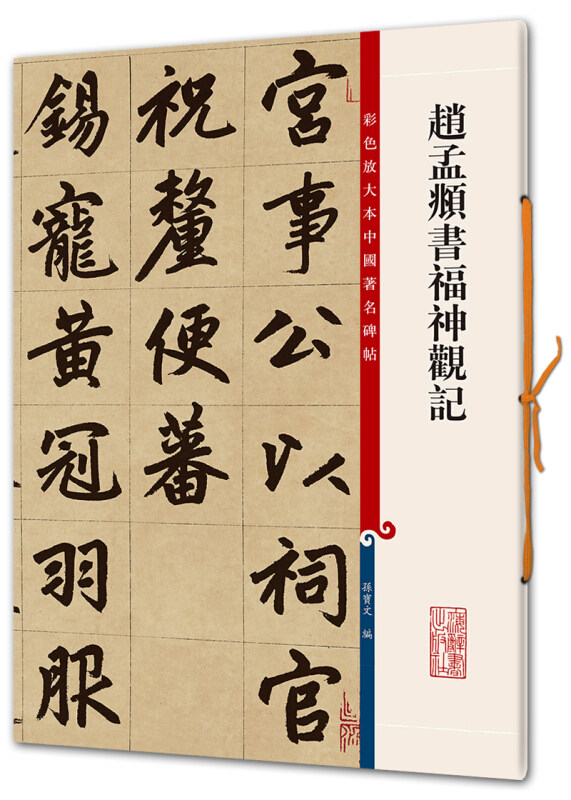 趙孟頫書福神觀記
上海辭書出版社
彩色放大本中國著名碑帖
孫寶文 編
宮事公以祠官
祝釐便蕃
錫寵黃冠羽服